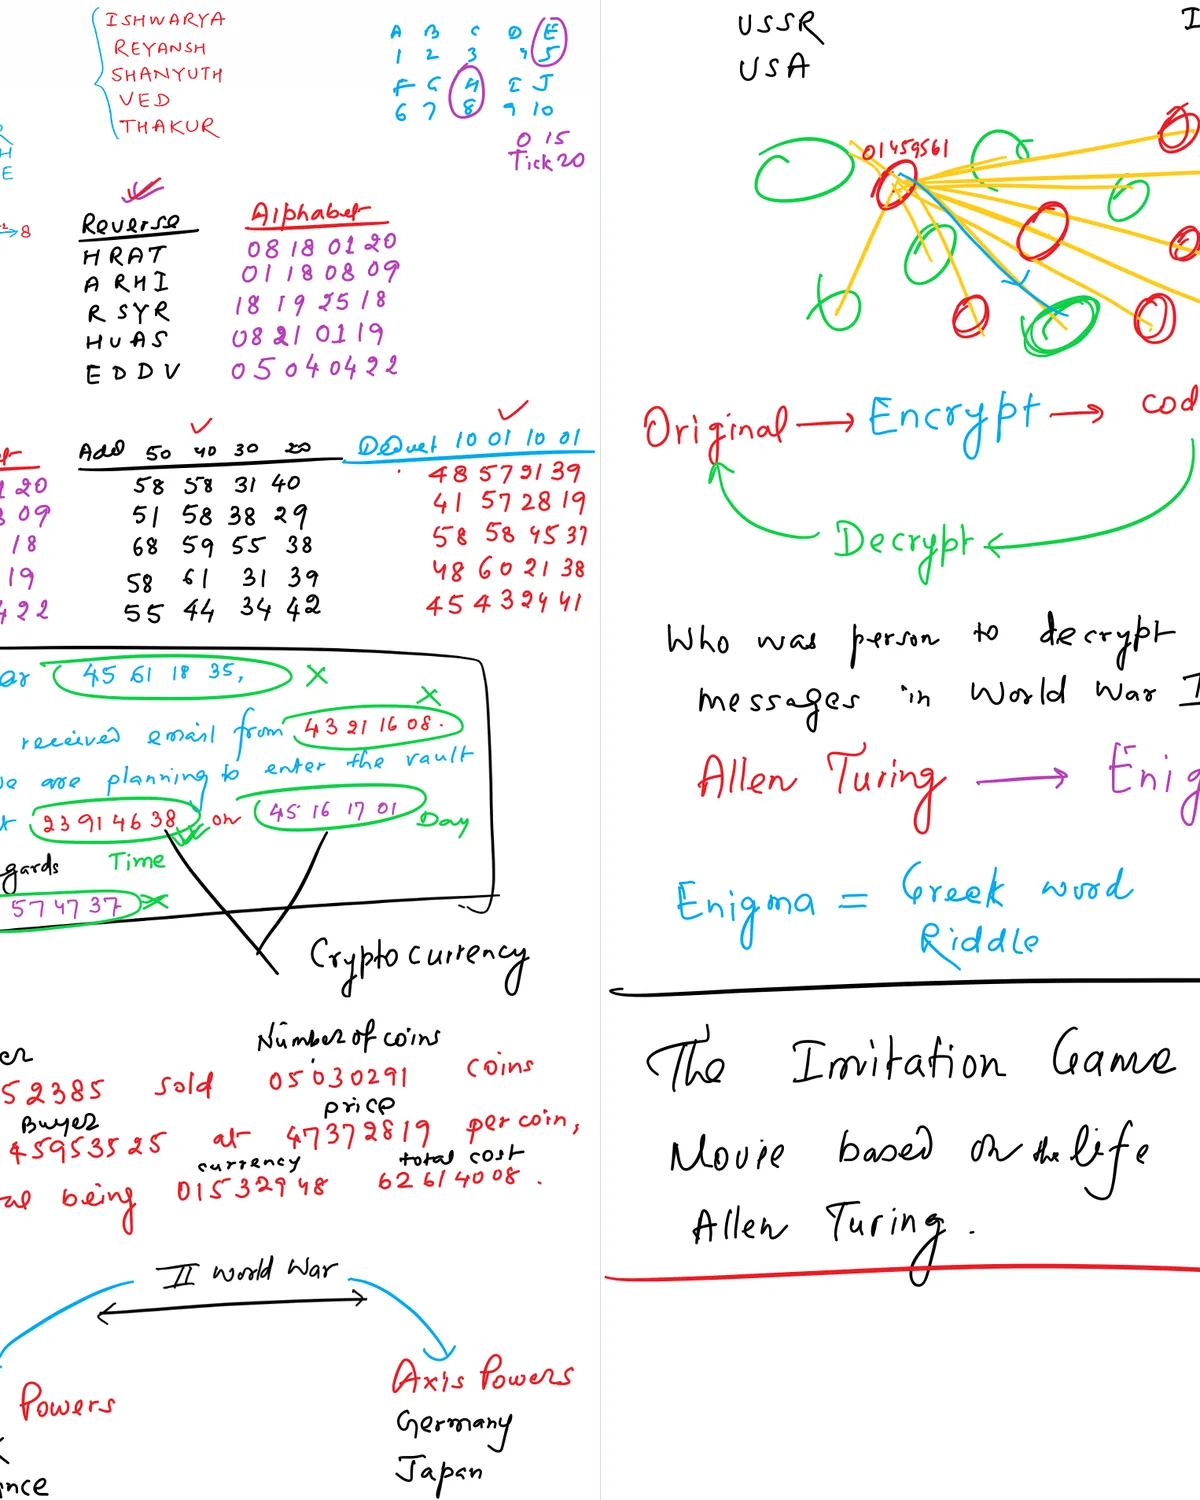 ISHWARYA
REYANSH
SHANYUTH
VED
THAKUR
A B C D E
1 2 3 4 5
F G H I J
6 7 8 9 10
0 15
Tick 20
H
E
8
Reverse
HRAT
ARHI
RSYR
HUAS
EDDV
Alphabet
08 18 01 20
01 18 08 09
18 19 25 18
08 21 01 19
05 04 04 22
20
09
18
19
22
Add 50 40 30 20
58 58 31 40
51 58 38 29
68 59 55 38
58 61 31 39
55 44 34 42
Deduct 10 01 10 01
48 57 21 39
41 57 28 19
58 58 45 37
48 60 21 38
45 43 24 41
45 61 18 35,
received email from 43 21 16 08.
are planning to enter the vault
23 91 46 38 on 45 16 17 01 Day
gards Time
57 47 37
Crypto currency
Number of coins
52385 sold 05030291 coins
Buyer price
45953525 at 47372819 per coin,
currency total cost
being 01532948 62614008.
II World War
Powers
Axis Powers
Germany
Japan
USSR
USA
01459561
Original → Encrypt → cod
Decrypt
Who was person to decrypt
messages in World War I
Allen Turing → Enig
Enigma = Greek word
Riddle
The Imitation Game
Movie based on the life
Allen Turing.